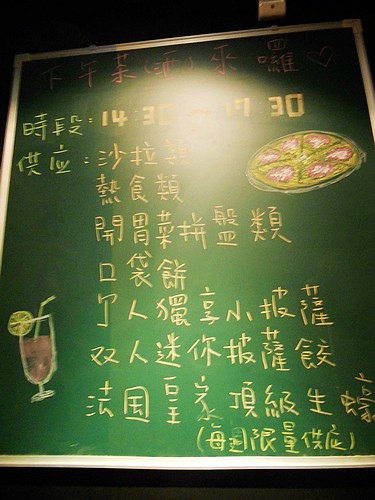 下午菜(酒)來囉♡
時段:14:30~17:30
供应:沙拉類
熱食類
開胃菜拼盤類
口袋餅
个人獨享小披薩
双人迷你披薩餃
法国皇家頂級生蠔
(每週限量供应)